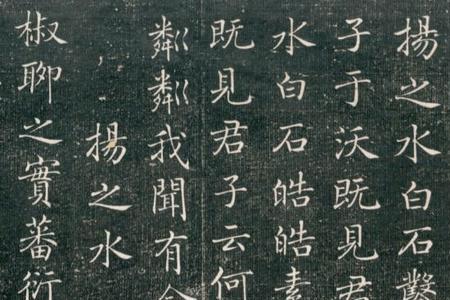 揚之水白石鑿
子于沃既見君
水白石皓皓素
既見君子云何
粼粼我聞有命
揚之水
椒聊之實蕃衍